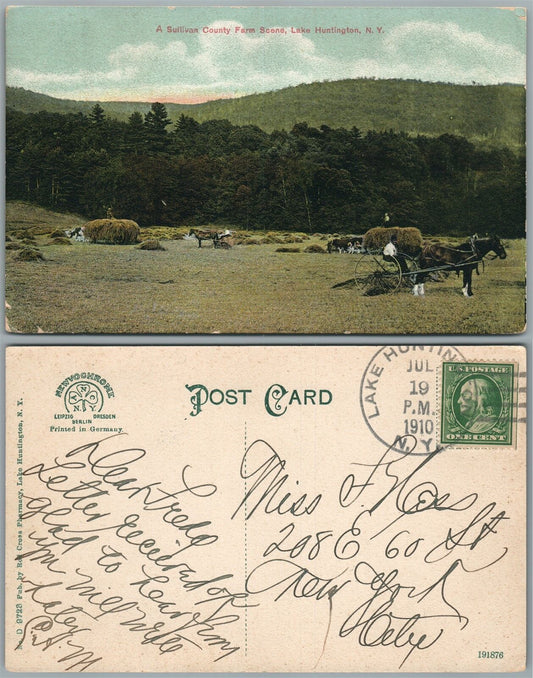 A Sullivan County Farm Scene, Lake Huntington, N. Y.
NEWVOCHROME
ANC
NY
LEIPZIG DRESDEN
BERLIN
Printed in Germany.
POST CARD
LAKE HUNTIN
JUL
19
P.M.
1910
N.Y.
U.S. POSTAGE
ONE CENT
No. D 9723 Pub. by Red Cross Pharmacy, Lake Huntington, N. Y.
Dear Freda
Letter received
glad to hear from
You will write
later
Miss F.
208 E 60 St
New York
City
191876